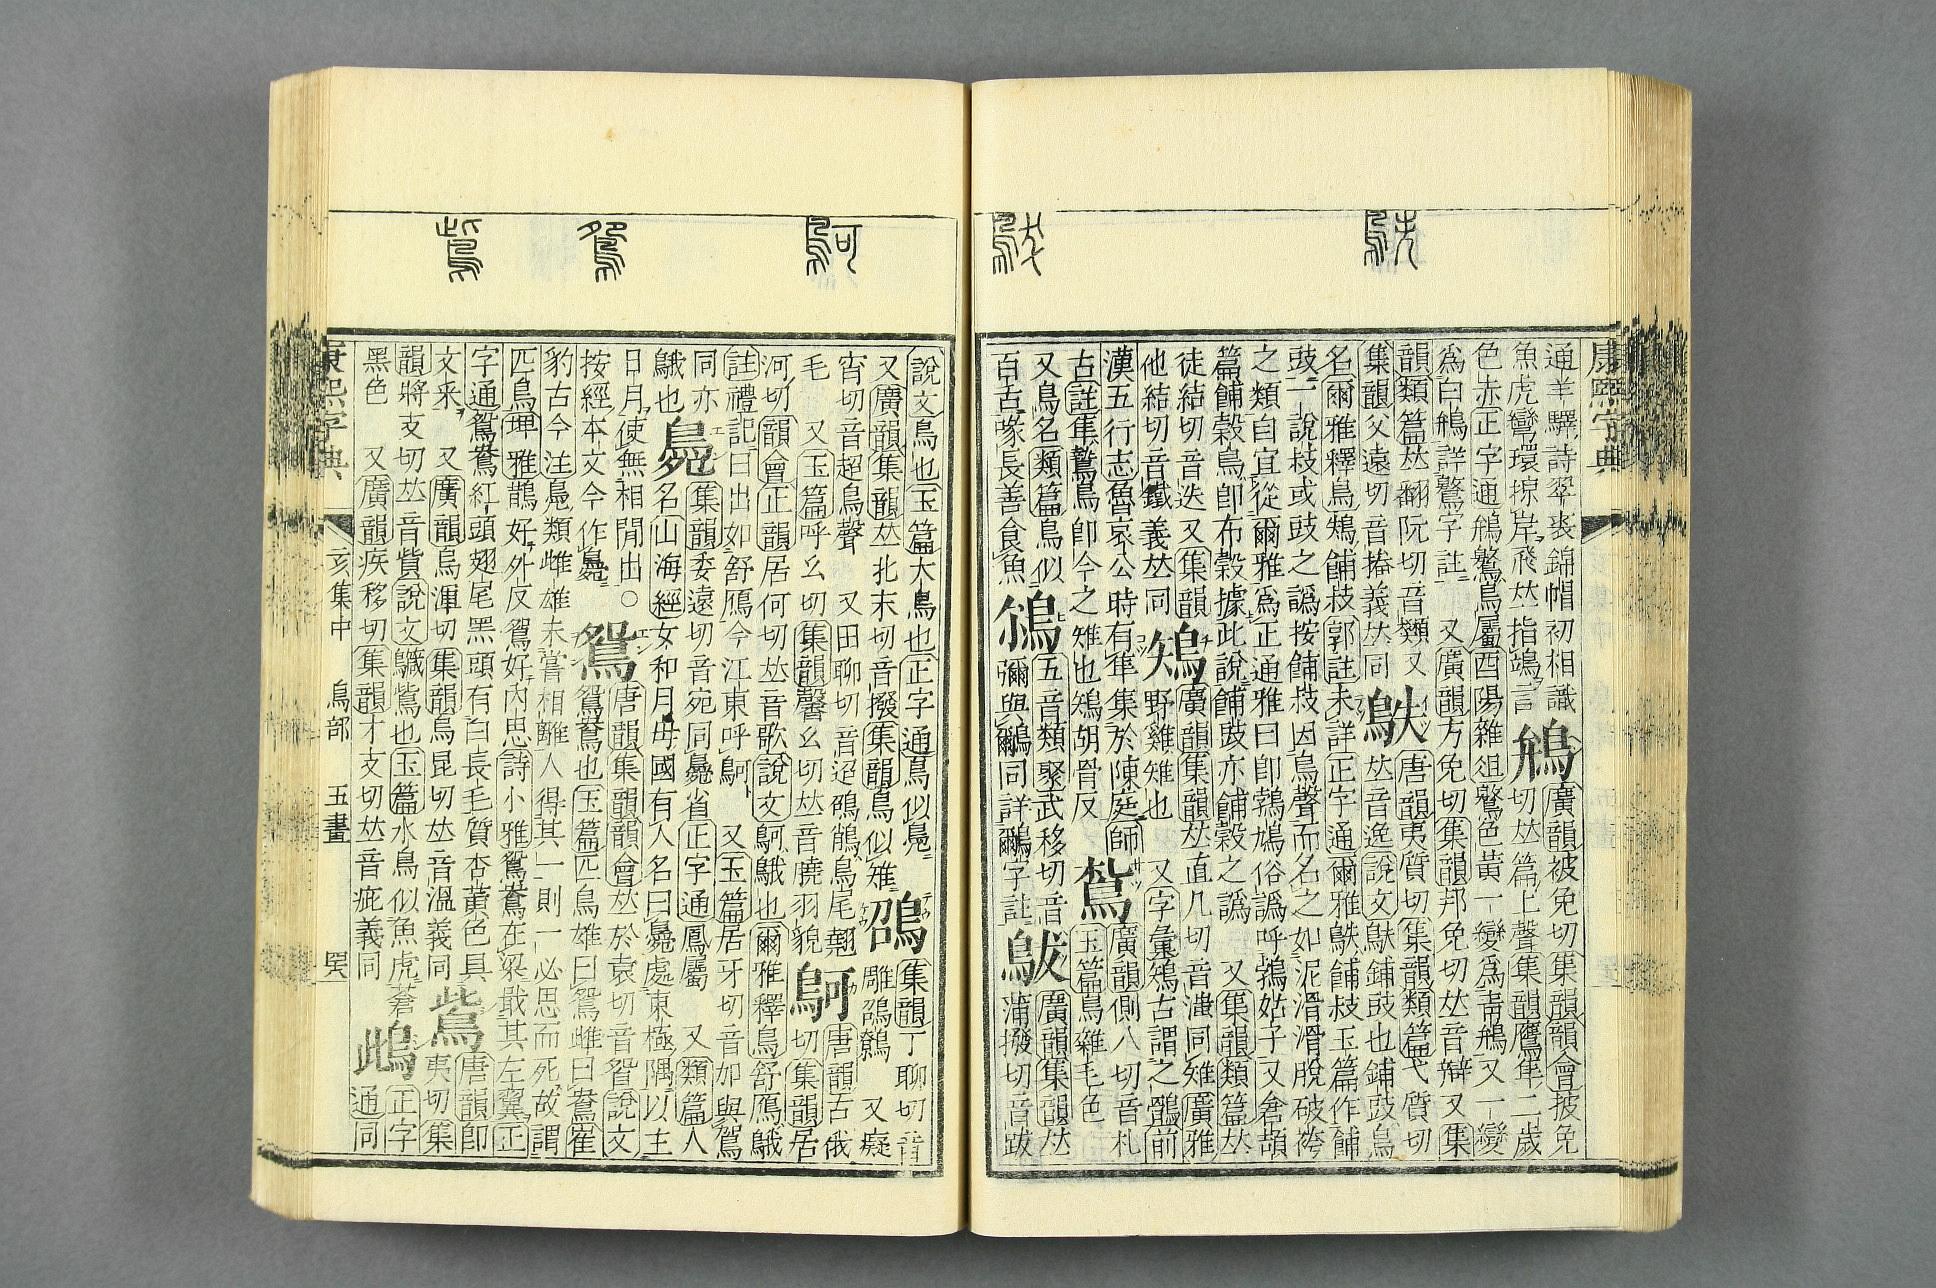 康熙字典
通羊驛詩翠裘錦帽初相識
魚虎彎環掠岸飛𠀤指鴗言
鴘
廣韻被免切集韻韻會披免
切𠀤篇上聲集韻鷹隼二歲
色赤正字通鴘鷩鳥屬酉陽雜俎鷩色黃一變爲靑鴘又一變
爲白鴘詳鷩字註　又廣韻方免切集韻邦免切𠀤音辯又集
韻類篇𠀤翻阮切音又
集韻父遠切音捲義𠀤同
鴩
唐韻夷質切集韻類篇弋質切
𠀤音逸說文鴩鋪豉也鋪豉鳥
名爾雅釋鳥鴩餔敊郭註未詳正字通爾雅鴩餔敊玉篇作餔
豉一說敊或豉之譌按餔敊因鳥聲而名之如泥滑滑脫破袴
之類自宜從爾雅爲正通雅曰卽鵓鳩俗譌呼鴩姑子又倉頡
篇餔穀鳥卽布穀據此說餔豉亦餔穀之譌　又集韻類篇𠀤
徒結切音迭又集韻
他結切音鐵義𠀤同
鴙
廣韻集韻𠀤直几切音同雉廣雅
野雞雉也　又字彙鴙古謂之鶻前
漢五行志魯哀公時有隼集於陳庭師
古註隼鷙鳥卽今之雉也鴙胡骨反
廣韻側八切音札
玉篇鳥雜毛色
又鳥名類篇鳥似
百舌喙長善食魚
五音類聚武移切音
彌與鸍同詳鸍字註
䳁
廣韻集韻𠀤
蒲撥切音跋
說文鳥也玉篇大鳥也正字通鳥似鳧
又廣韻集韻𠀤北末切音撥集韻鳥似雉
䳂
集韻丁聊切音
雕䳂鷯　又癡
宵切音超鳥聲　又田聊切音迢䳂鷦鳥尾翹
毛　又玉篇呼幺切集韻馨幺切𠀤音曉羽貌
鴚
唐韻古俄
切集韻居
河切韻會正韻居何切𠀤音歌說文鴚鵝也爾雅釋鳥舒鴈鵝
註禮記曰出如舒鴈今江東呼鴚　又玉篇居牙切音加與鴐
同亦
鵝也
䳃
集韻委遠切音宛同䳃省正字通鳳屬　又類篇人
名山海經女和月母國有人名曰䳃處東極隅以主
日月使無相閒出○
按經本文今作䳃
鴛
唐韻集韻韻會𠀤於袁切音眢說文
鴛鴦也玉篇匹鳥雄曰鴛雌曰鴦崔
豹古今注鳧類雌雄未嘗相離人得其一則一必思而死故謂
匹鳥埤雅鵲好外反鴛好內思詩小雅鴛鴦在梁戢其左翼正
字通鴛鴦紅頭翅尾黑頭有白長毛質杏黃色具
文采　又廣韻烏渾切集韻烏昆切𠀤音溫義同
鴜
唐韻卽
夷切集
韻將支切𠀤音貲說文鱵鴜也玉篇水鳥似魚虎蒼
黑色　又廣韻疾移切集韻才支切𠀤音疵義同
䳄
正字
通同
康熙字典
亥集中　鳥部　五畫